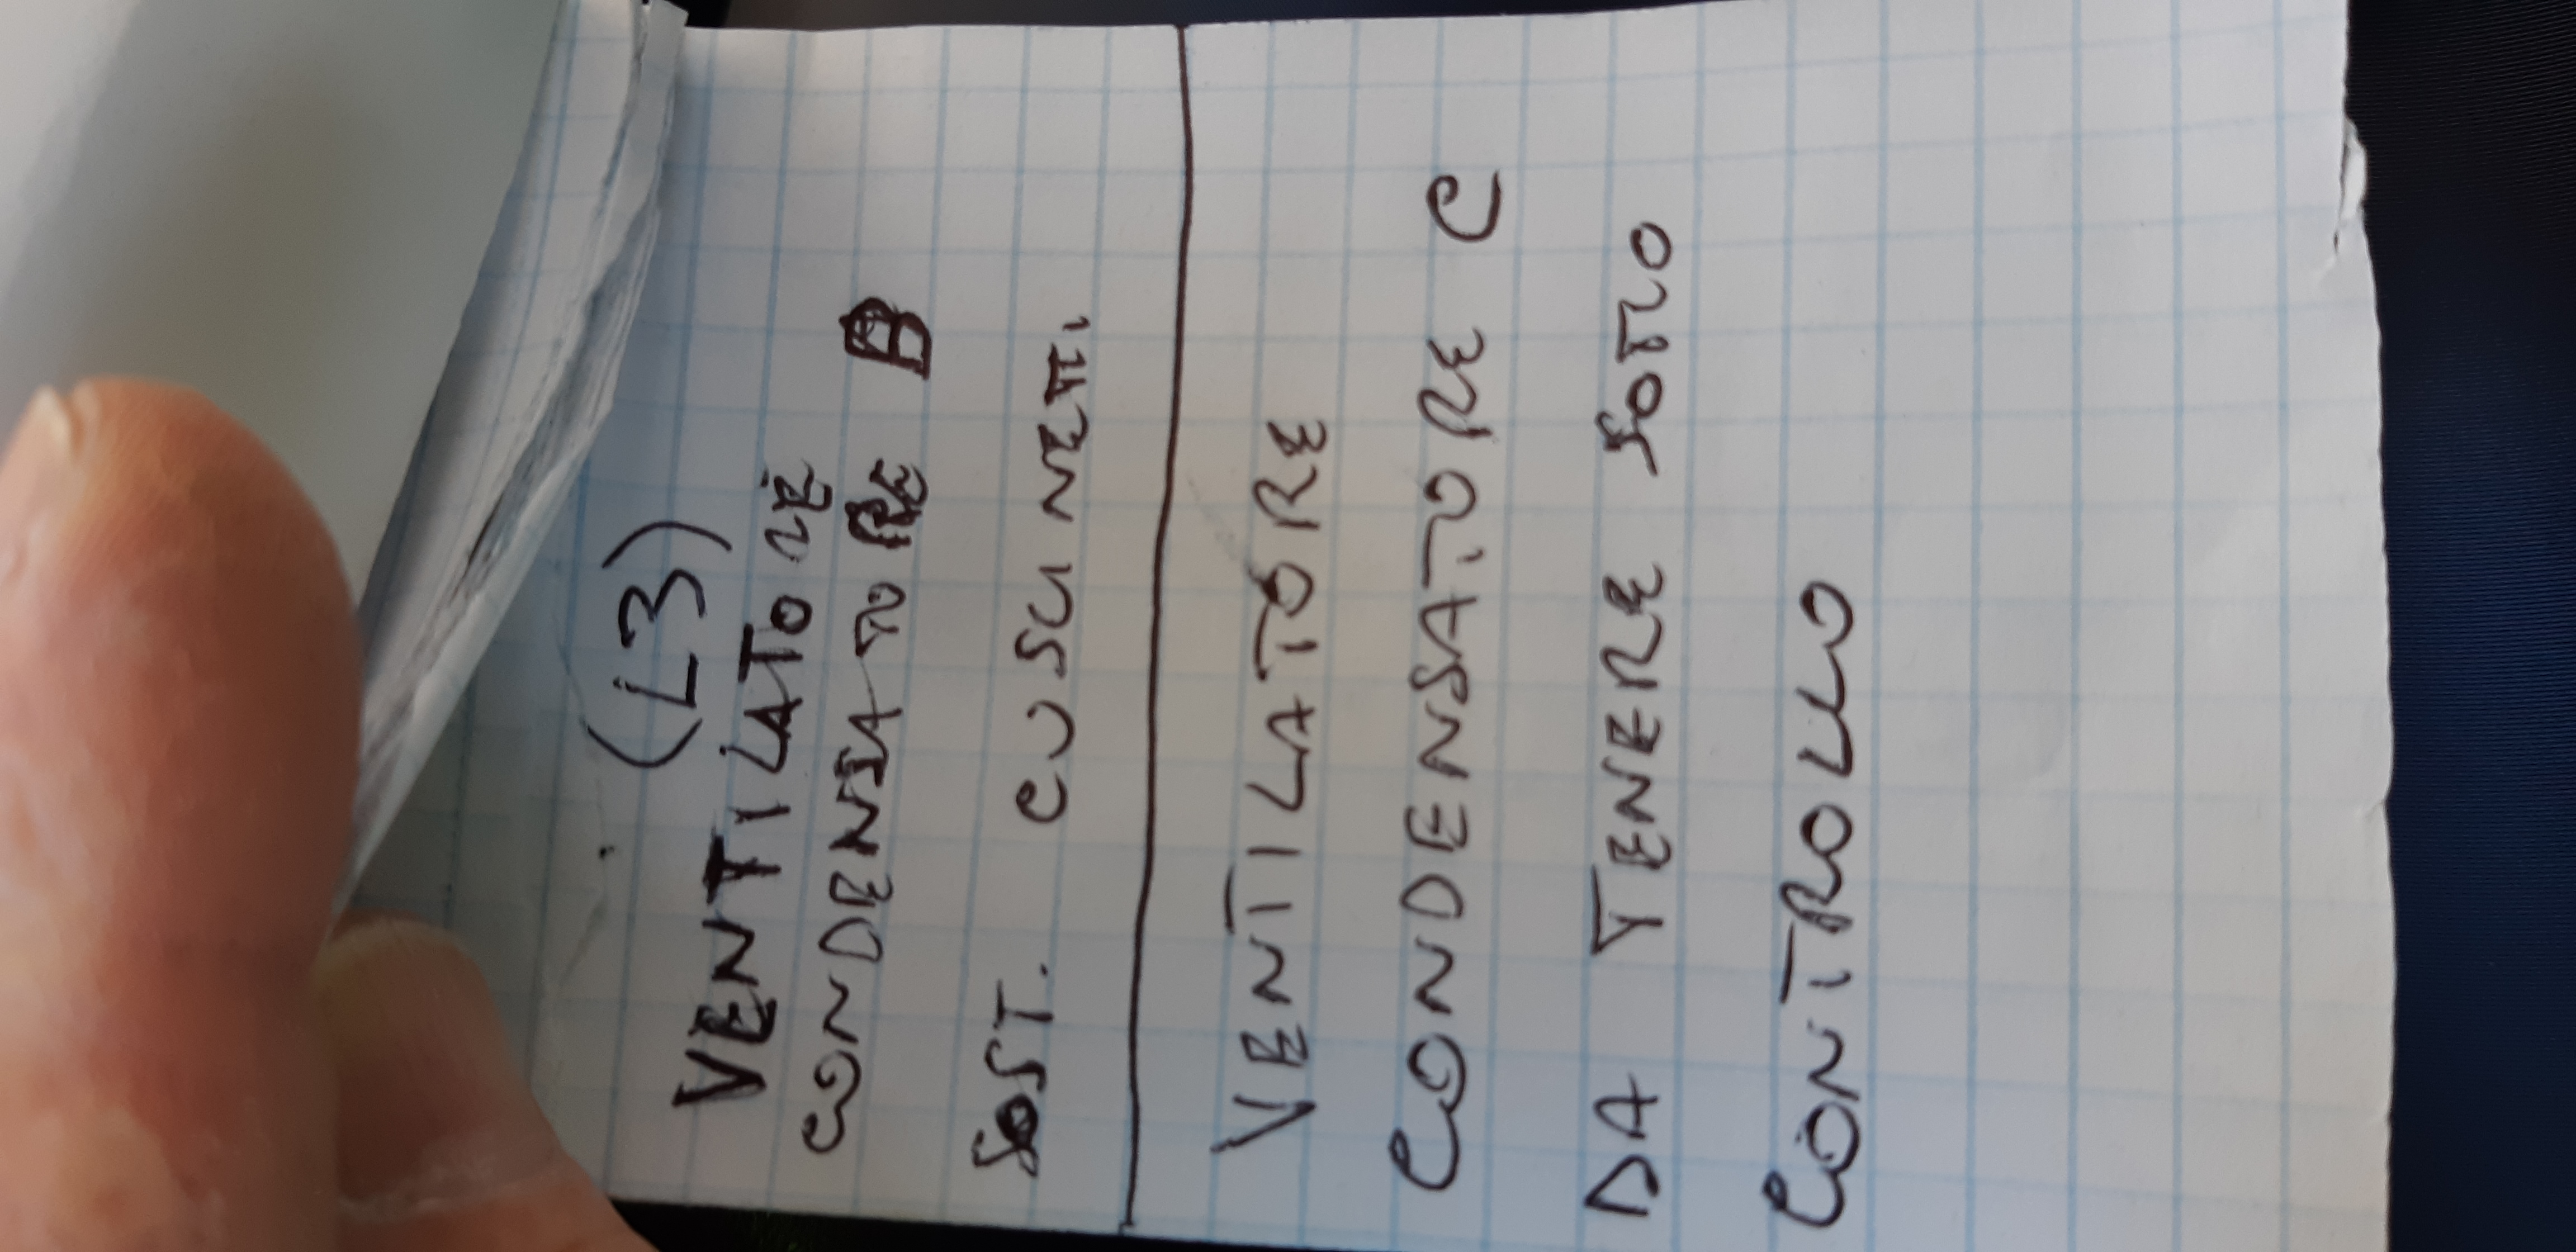 (L3)
VENTILATORE
CONDENSATORE B
SOST. CUSCINETTI
VENTILATORE
CONDENSATORE C
DA TENERE SOTTO
CONTROLLO